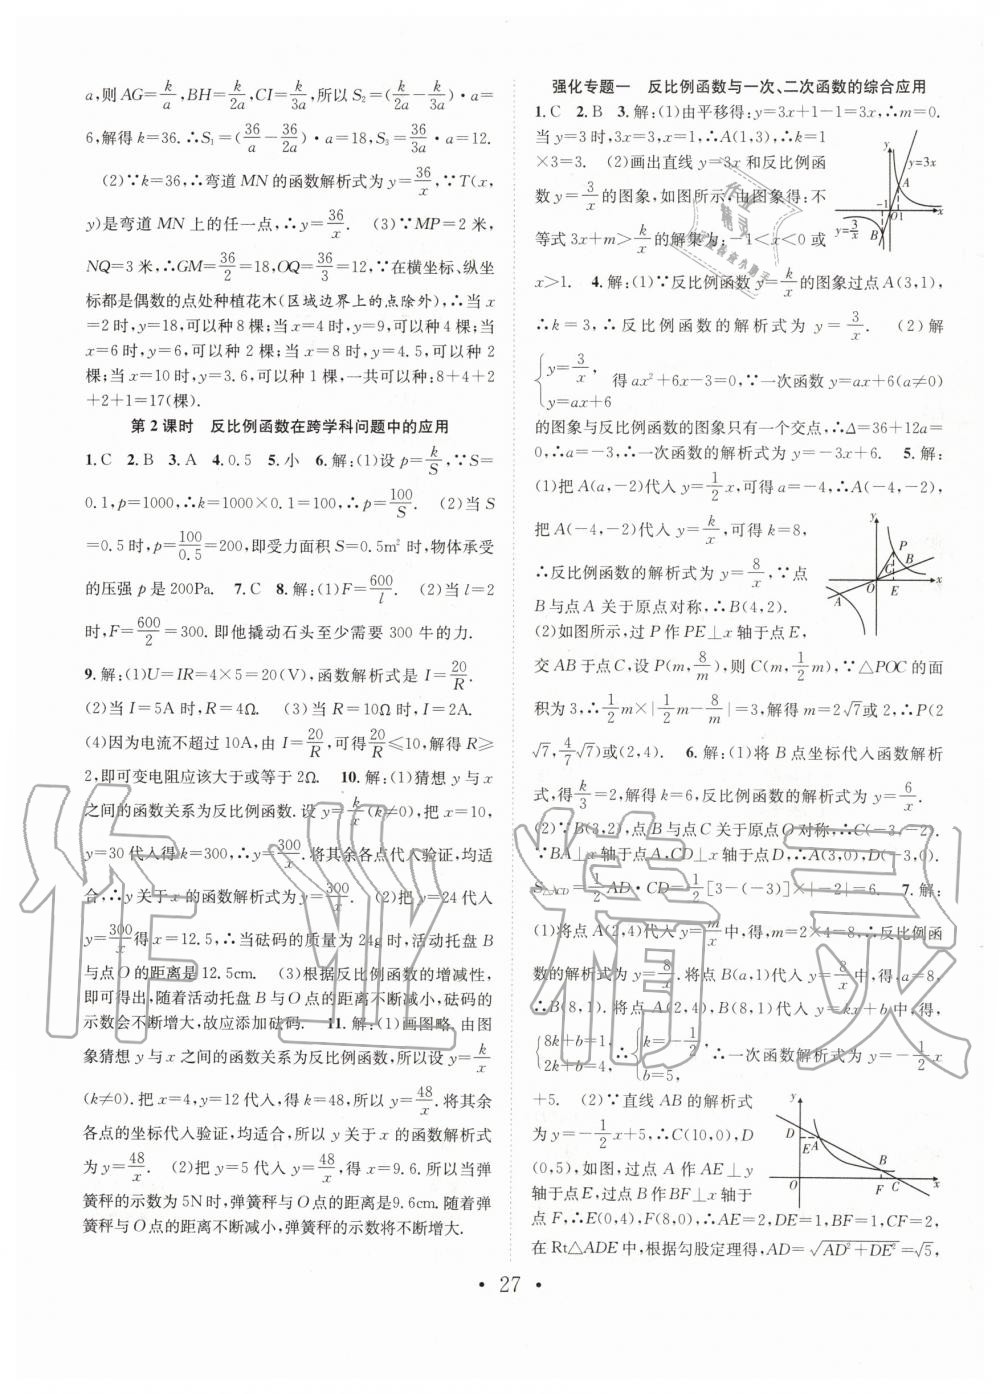 a,则AG=k/a,BH=k/2a,CI=k/3a,所以S₂=(k/2a-k/3a)·a=
6,解得k=36.∴S₁=(36/a-36/2a)·a=18,S₃=36/3a·a=12.
(2)∵k=36,∴弯道MN的函数解析式为y=36/x,∵T(x,
y)是弯道MN上的任一点,∴y=36/x. (3)∵MP=2米,
NQ=3米,∴GM=36/2=18,OQ=36/3=12,∵在横坐标、纵坐
标都是偶数的点处种植花木(区域边界上的点除外),∴当x
=2时,y=18,可以种8棵;当x=4时,y=9,可以种4棵;当
x=6时,y=6,可以种2棵;当x=8时,y=4.5,可以种2
棵;当x=10时,y=3.6,可以种1棵,一共可以种:8+4+2
+2+1=17(棵).
第2课时 反比例函数在跨学科问题中的应用
1.C 2.B 3.A 4.0.5 5.小 6.解:(1)设p=k/S,∵S=
0.1,p=1000,∴k=1000×0.1=100,∴p=100/S. (2)当S
=0.5时,p=100/0.5=200,即受力面积S=0.5m²时,物体承受
的压强p是200Pa. 7.C 8.解:(1)F=600/l. (2)当l=2
时,F=600/2=300.即他撬动石头至少需要300牛的力.
9.解:(1)U=IR=4×5=20(V),函数解析式是I=20/R.
(2)当I=5A时,R=4Ω. (3)当R=10Ω时,I=2A.
(4)因为电流不超过10A,由I=20/R,可得20/R≤10,解得R≥
2,即可变电阻应该大于或等于2Ω. 10.解:(1)猜想y与x
之间的函数关系为反比例函数.设y=k/x(k≠0),把x=10,
y=30代入得k=300,∴y=300/x.将其余各点代入验证,均适
合,∴y关于x的函数解析式为y=300/x. (2)把y=24代入
y=300/x得x=12.5,∴当砝码的质量为24g时,活动托盘B
与点O的距离是12.5cm. (3)根据反比例函数的增减性,
即可得出,随着活动托盘B与O点的距离不断减小,砝码的
示数会不断增大,故应添加砝码. 11.解:(1)画图略.由图
象猜想y与x之间的函数关系为反比例函数,所以设y=k/x
(k≠0).把x=12,y=4代入,得k=48,所以y=48/x.将其余
各点的坐标代入验证,均适合,所以y关于x的函数解析式
为y=48/x. (2)把y=5代入y=48/x,得x=9.6.所以当弹
簧秤的示数为5N时,弹簧秤与O点的距离是9.6cm.随着弹
簧秤与O点的距离不断减小,弹簧秤的示数将不断增大.
强化专题一 反比例函数与一次、二次函数的综合应用
1.C 2.B 3.解:(1)由平移得:y=3x+1-1=3x,∴m=0.
当y=3时,3x=3,x=1,∴A(1,3),∴k=1
×3=3. (2)画出直线y=3x和反比例函
数y=3/x的图象,如图所示,由图象得:不
等式3x+m>k/x的解集为:-1<x<0或
y y=3x A -1 O 1 x y=3/x B
x>1. 4.解:(1)∵反比例函数y=k/x的图象过点A(3,1),
∴k=3,∴反比例函数的解析式为y=3/x. (2)解
{y=3/x, y=ax+6 得ax²+6x-3=0,∵一次函数y=ax+6(a≠0)
的图象与反比例函数的图象只有一个交点,∴Δ=36+12a=
0,∴a=-3,∴一次函数解析式为y=-3x+6. 5.解:
(1)把A(a,-2)代入y=1/2x,可得a=-4,∴A(-4,-2),
把A(-4,-2)代入y=k/x,可得k=8,
∴反比例函数的解析式为y=8/x,∵点
B与点A关于原点对称,∴B(4,2).
y P C B O E x A
(2)如图所示,过P作PE⊥x轴于点E,
交AB于点C,设P(m,8/m),则C(m,1/2m),∵△POC的面
积为3,∴1/2m×|1/2m-8/m|=3,解得m=2√7或2,∴P(2
√7,4/7√7)或(2,4). 6.解:(1)将B点坐标代入函数解析
式,得k/3=2,解得k=6,反比例函数的解析式为y=6/x.
(2)∵B(3,2),点B与点C关于原点O对称,∴C(-3,-2).
∵BA⊥x轴于点A,CD⊥x轴于点D,∴A(3,0),D(-3,0).
S△ACD=1/2AD·CD=1/2[3-(-3)]×|-2|=6. 7.解:
(1)将点A(2,4)代入y=m/x中,得,m=2×4=8,∴反比例函
数的解析式为y=8/x.将点B(a,1)代入y=8/x中,得,a=8,
∴B(8,1).将点A(2,4),B(8,1)代入y=kx+b中,得,
{8k+b=1, 2k+b=4, ∴{k=-1/2, b=5, ∴一次函数解析式为y=-1/2x
+5. (2)∵直线AB的解析式
为y=-1/2x+5,∴C(10,0),D
(0,5),如图,过点A作AE⊥y
轴于点E,过点B作BF⊥x轴于
y D E A B O F C x
点F,∴E(0,4),F(8,0),∴AE=2,DE=1,BF=1,CF=2,
在Rt△ADE中,根据勾股定理得,AD=√(AD²+DE²)=√5,
·27·
作业精灵